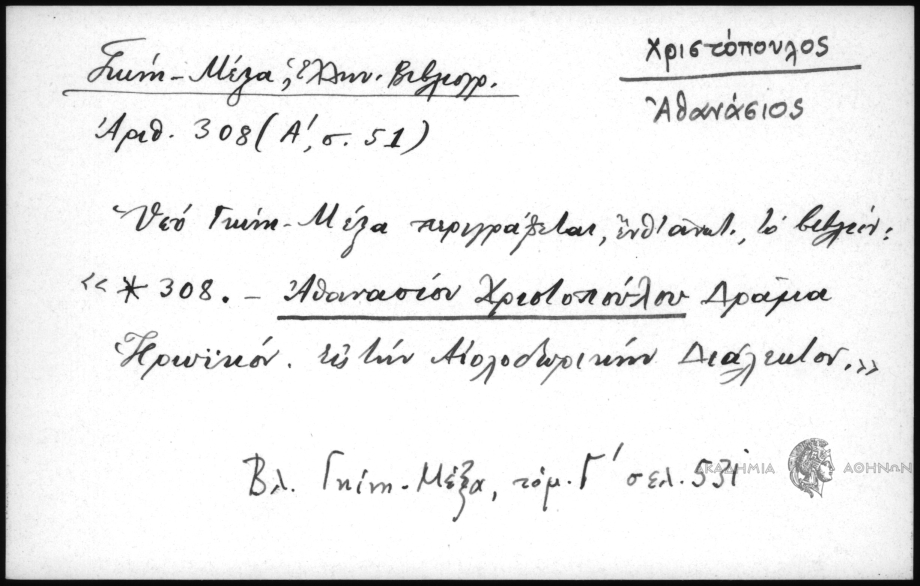 Χριστόπουλος
Ἀθανάσιος
Γκίνη-Μέξα, Ἑλλην. Βιβλιογρ.
Ἀριθ. 308 (Α', σ. 51)
Ὑπὸ Γκίνη-Μέξα περιγράφεται, ἔνθ' ἀνωτ., τὸ βιβλίον:
«*308. – Ἀθανασίου Χριστοπούλου Δρᾶμα
Ἡρωϊκόν. εἰς τὴν Αἰολοδωρικὴν Διάλεκτον.»
Βλ. Γκίνη-Μέξα, τόμ. Γ' σελ. 531
ΑΚΑΔΗΜΙΑ ΑΘΗΝΩΝ